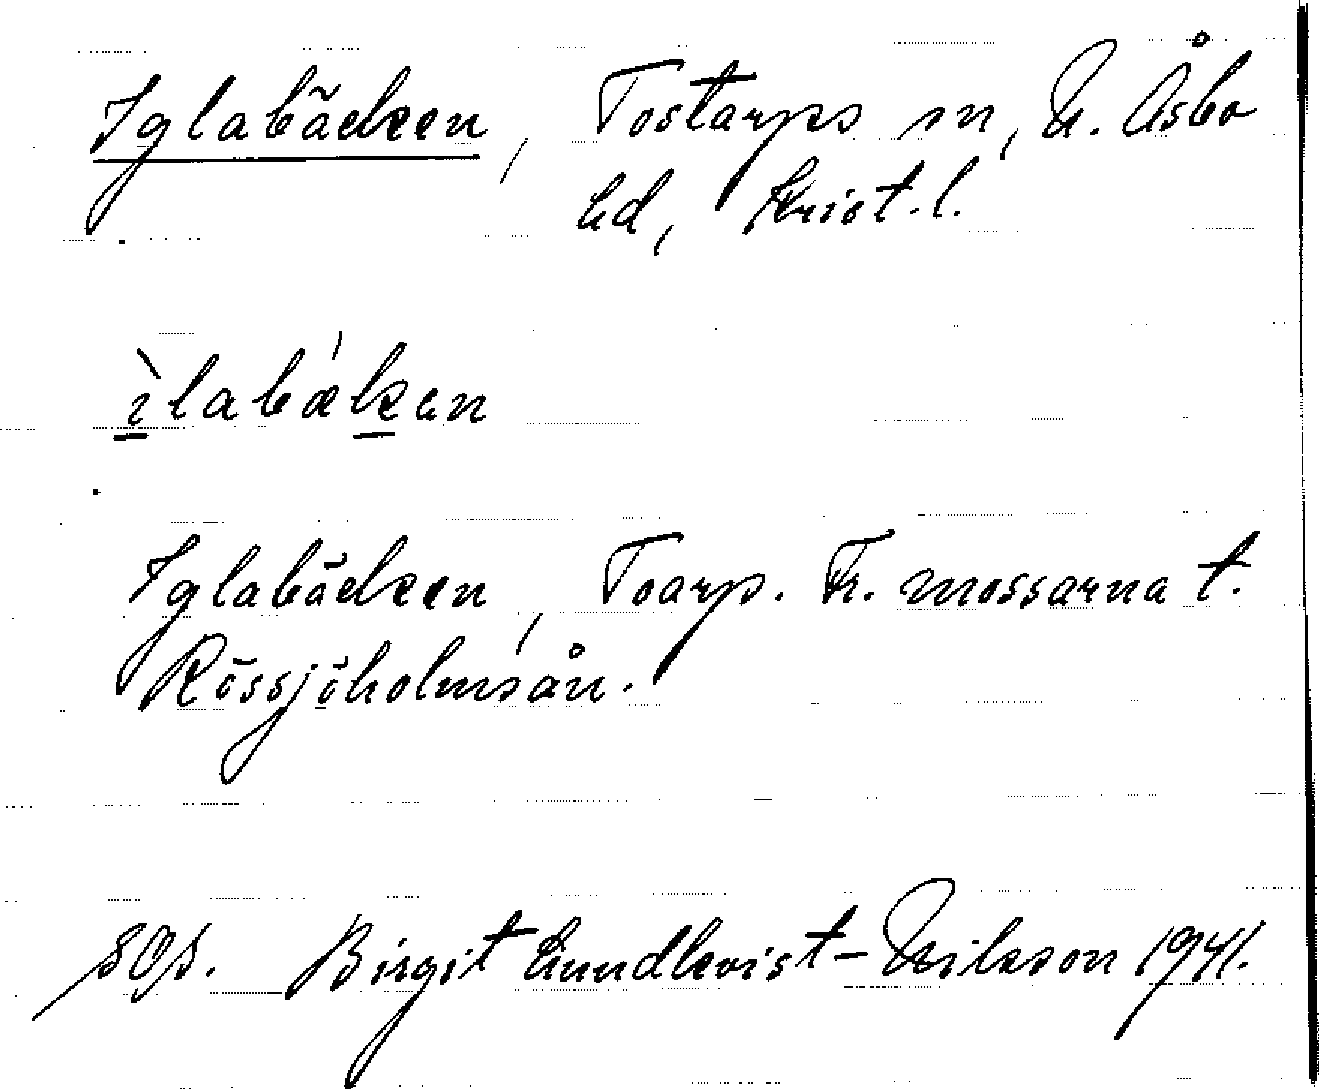 Iglabäcken, Tostarps sn, N. Åsbo
hd, Krist. l.
ìlabǽken
Iglabäcken, Toarp. Fr. mossarna t.
Rössjöholmsån.
Birgit Lundkvist-Nilsson 1941.